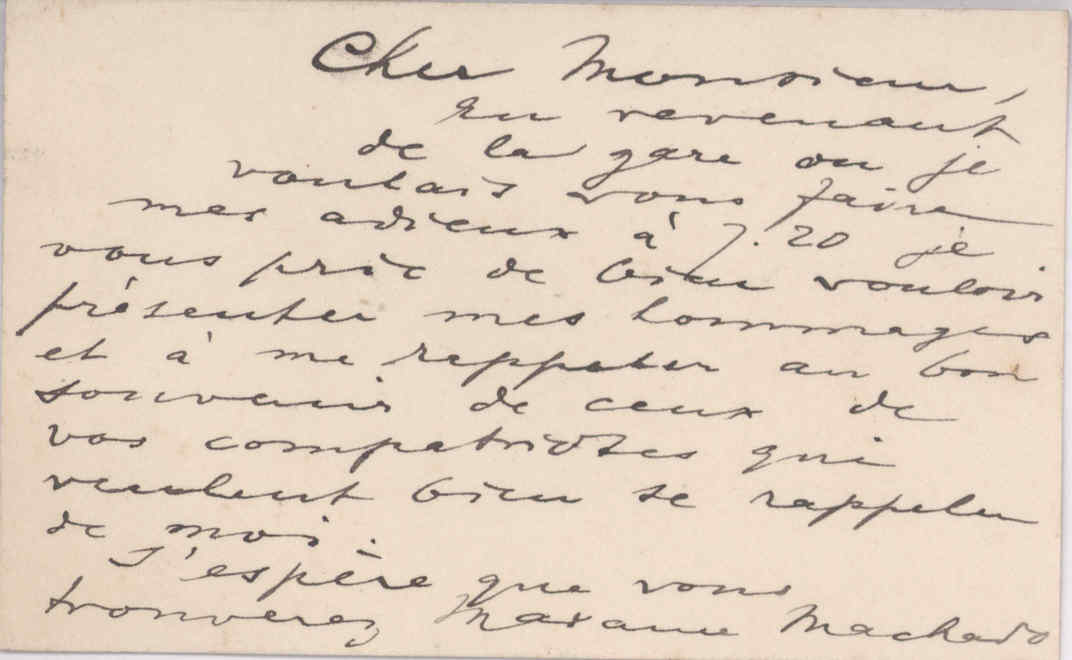 Cher Monsieur,
En revenant
de la gare ou je
voulais vous faire
mes adieux à 7.20 je
vous prie de bien vouloir
présenter mes hommages
et à me rappeler au bon
souvenir de ceux de
vos compatriotes qui
veulent bien se rappeler
de moi.
J'espère que vous
trouverez Madame Machado